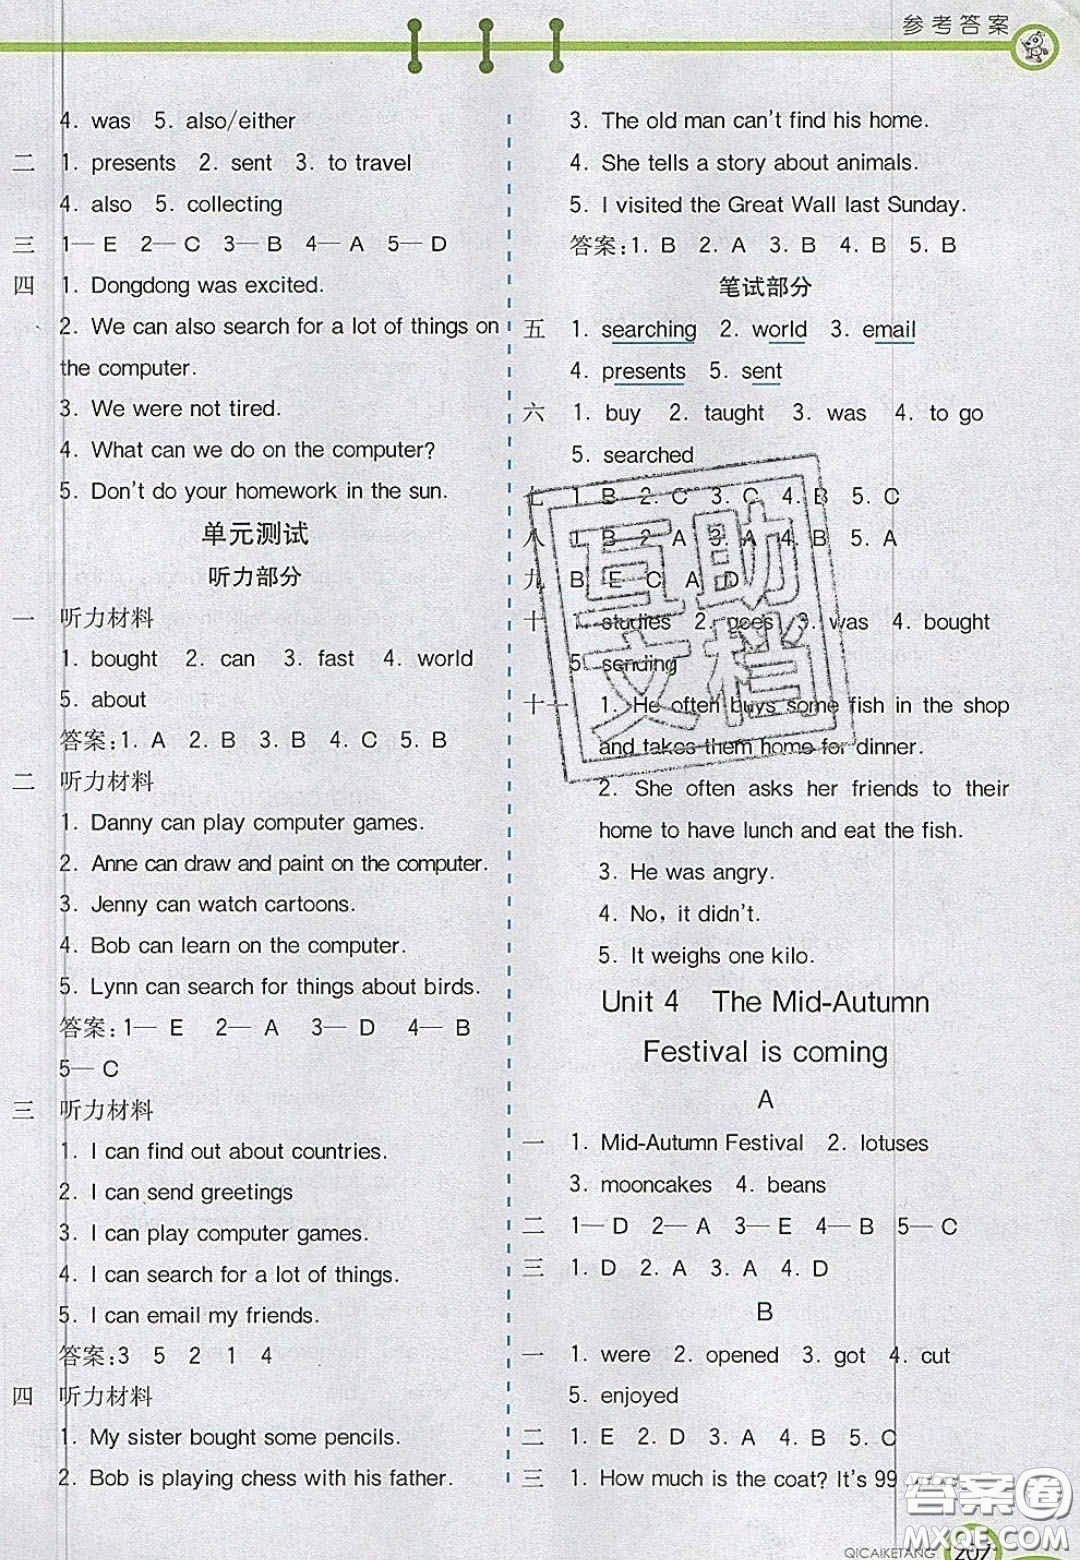 参考答案
4. was 5. also/either
二 1. presents 2. sent 3. to travel
4. also 5. collecting
三 1— E 2— C 3— B 4— A 5— D
四 1. Dongdong was excited.
2. We can also search for a lot of things on
the computer.
3. We were not tired.
4. What can we do on the computer?
5. Don't do your homework in the sun.
单元测试
听力部分
一 听力材料
1. bought 2. can 3. fast 4. world
5. about
答案:1. A 2. B 3. B 4. C 5. B
二 听力材料
1. Danny can play computer games.
2. Anne can draw and paint on the computer.
3. Jenny can watch cartoons.
4. Bob can learn on the computer.
5. Lynn can search for things about birds.
答案:1— E 2— A 3— D 4— B
5— C
三 听力材料
1. I can find out about countries.
2. I can send greetings
3. I can play computer games.
4. I can search for a lot of things.
5. I can email my friends.
答案:3 5 2 1 4
四 听力材料
1. My sister bought some pencils.
2. Bob is playing chess with his father.
3. The old man can't find his home.
4. She tells a story about animals.
5. I visited the Great Wall last Sunday.
答案:1. B 2. A 3. B 4. B 5. B
笔试部分
五 1. searching 2. world 3. email
4. presents 5. sent
六 1. buy 2. taught 3. was 4. to go
5. searched
七 1. B 2. C 3. C 4. B 5. C
八 1. B 2. A 3. A 4. B 5. A
九 B E C A D
十 1. studies 2. goes 3. was 4. bought
5. sending
十一 1. He often buys some fish in the shop
and takes them home for dinner.
2. She often asks her friends to their
home to have lunch and eat the fish.
3. He was angry.
4. No, it didn't.
5. It weighs one kilo.
Unit 4 The Mid-Autumn
Festival is coming
A
一 1. Mid-Autumn Festival 2. lotuses
3. mooncakes 4. beans
二 1— D 2— A 3— E 4— B 5— C
三 1. D 2. A 3. A 4. D
B
一 1. were 2. opened 3. got 4. cut
5. enjoyed
二 1. E 2. D 3. A 4. B 5. C
三 1. How much is the coat? It's 99
QICAIKETANG 207
互助
文档
答案圈
MXQE.COM